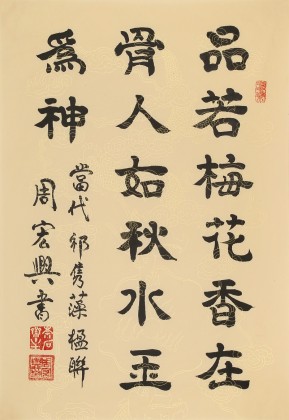 品若梅花香在
骨人如秋水玉
爲神
當代祁隽藻楹聯
周宏興書